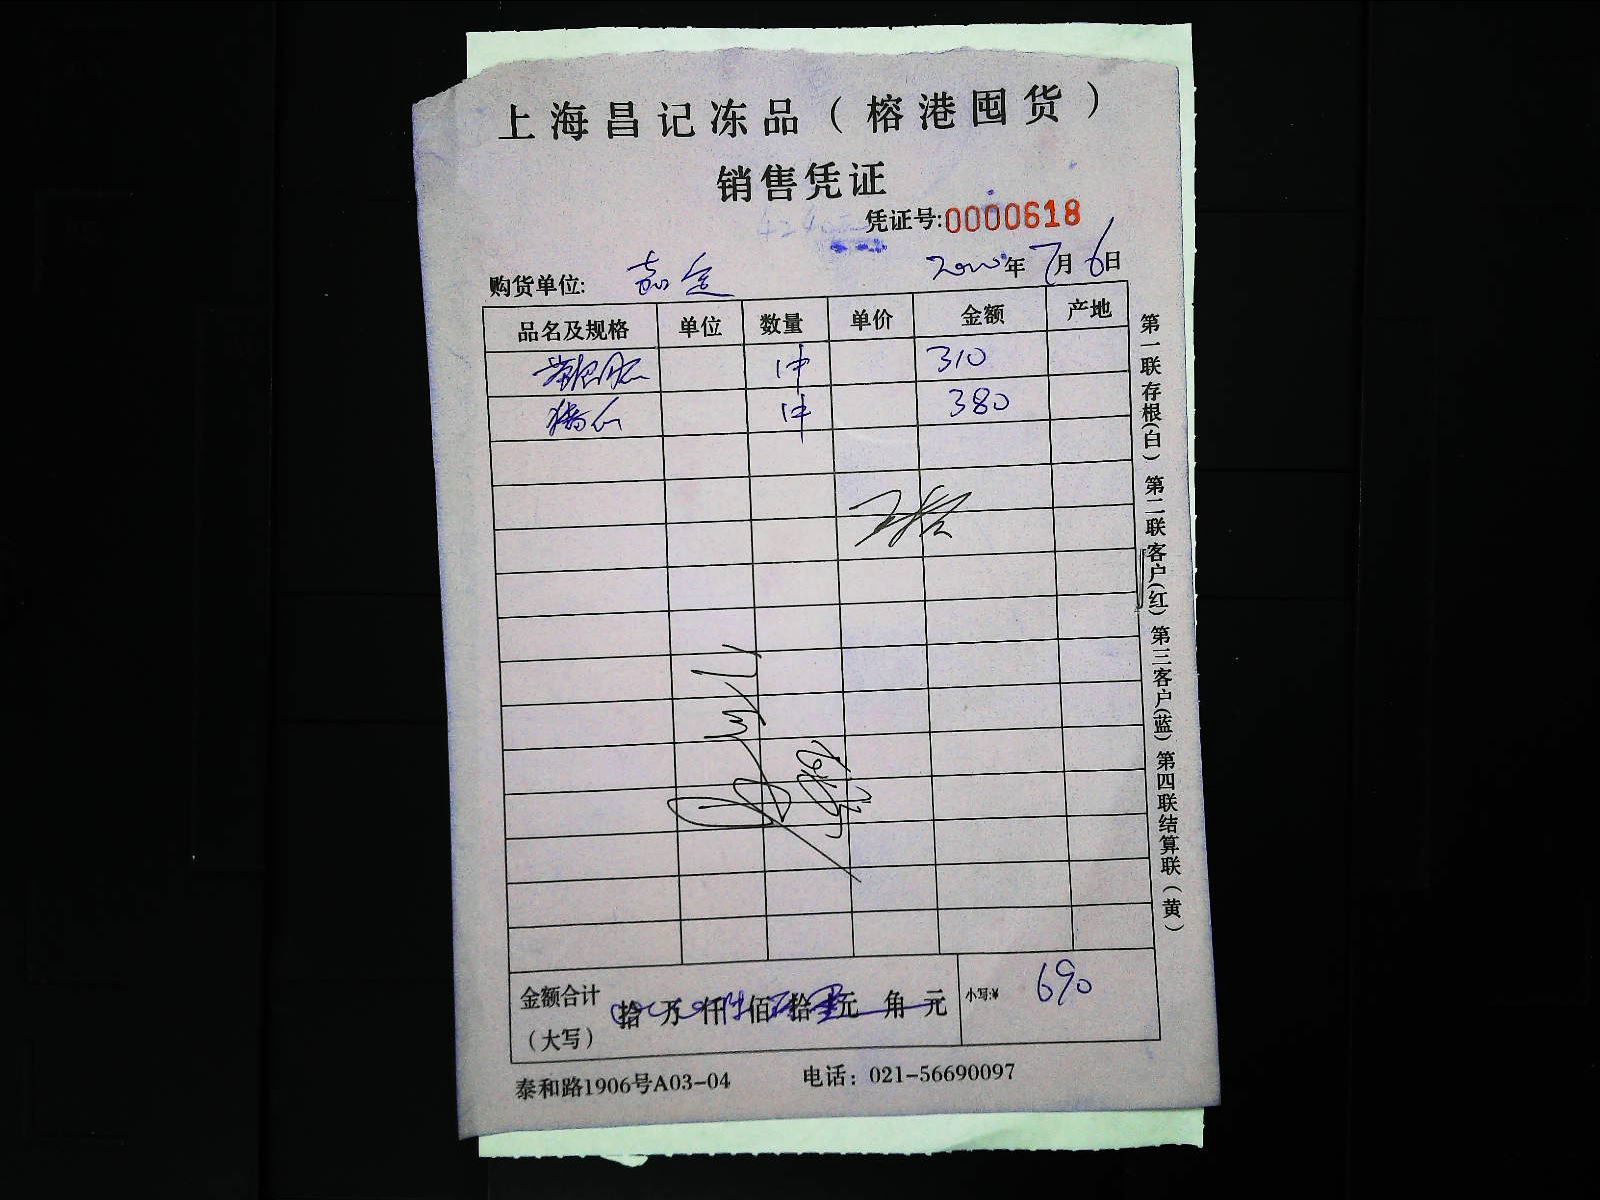 上海昌记冻品（榕港囤货）
销售凭证
凭证号:0000618
购货单位: 嘉定 年7月6日
品名及规格 单位 数量 单价 金额 产地
1件 310
1件 380
金额合计 拾 万 仟 佰 拾 元 角 元 小写:¥ 690
（大写）
泰和路1906号A03-04 电话：021-56690097
第一联存根(白) 第二联客户(红) 第三客户(蓝) 第四联结算联(黄)